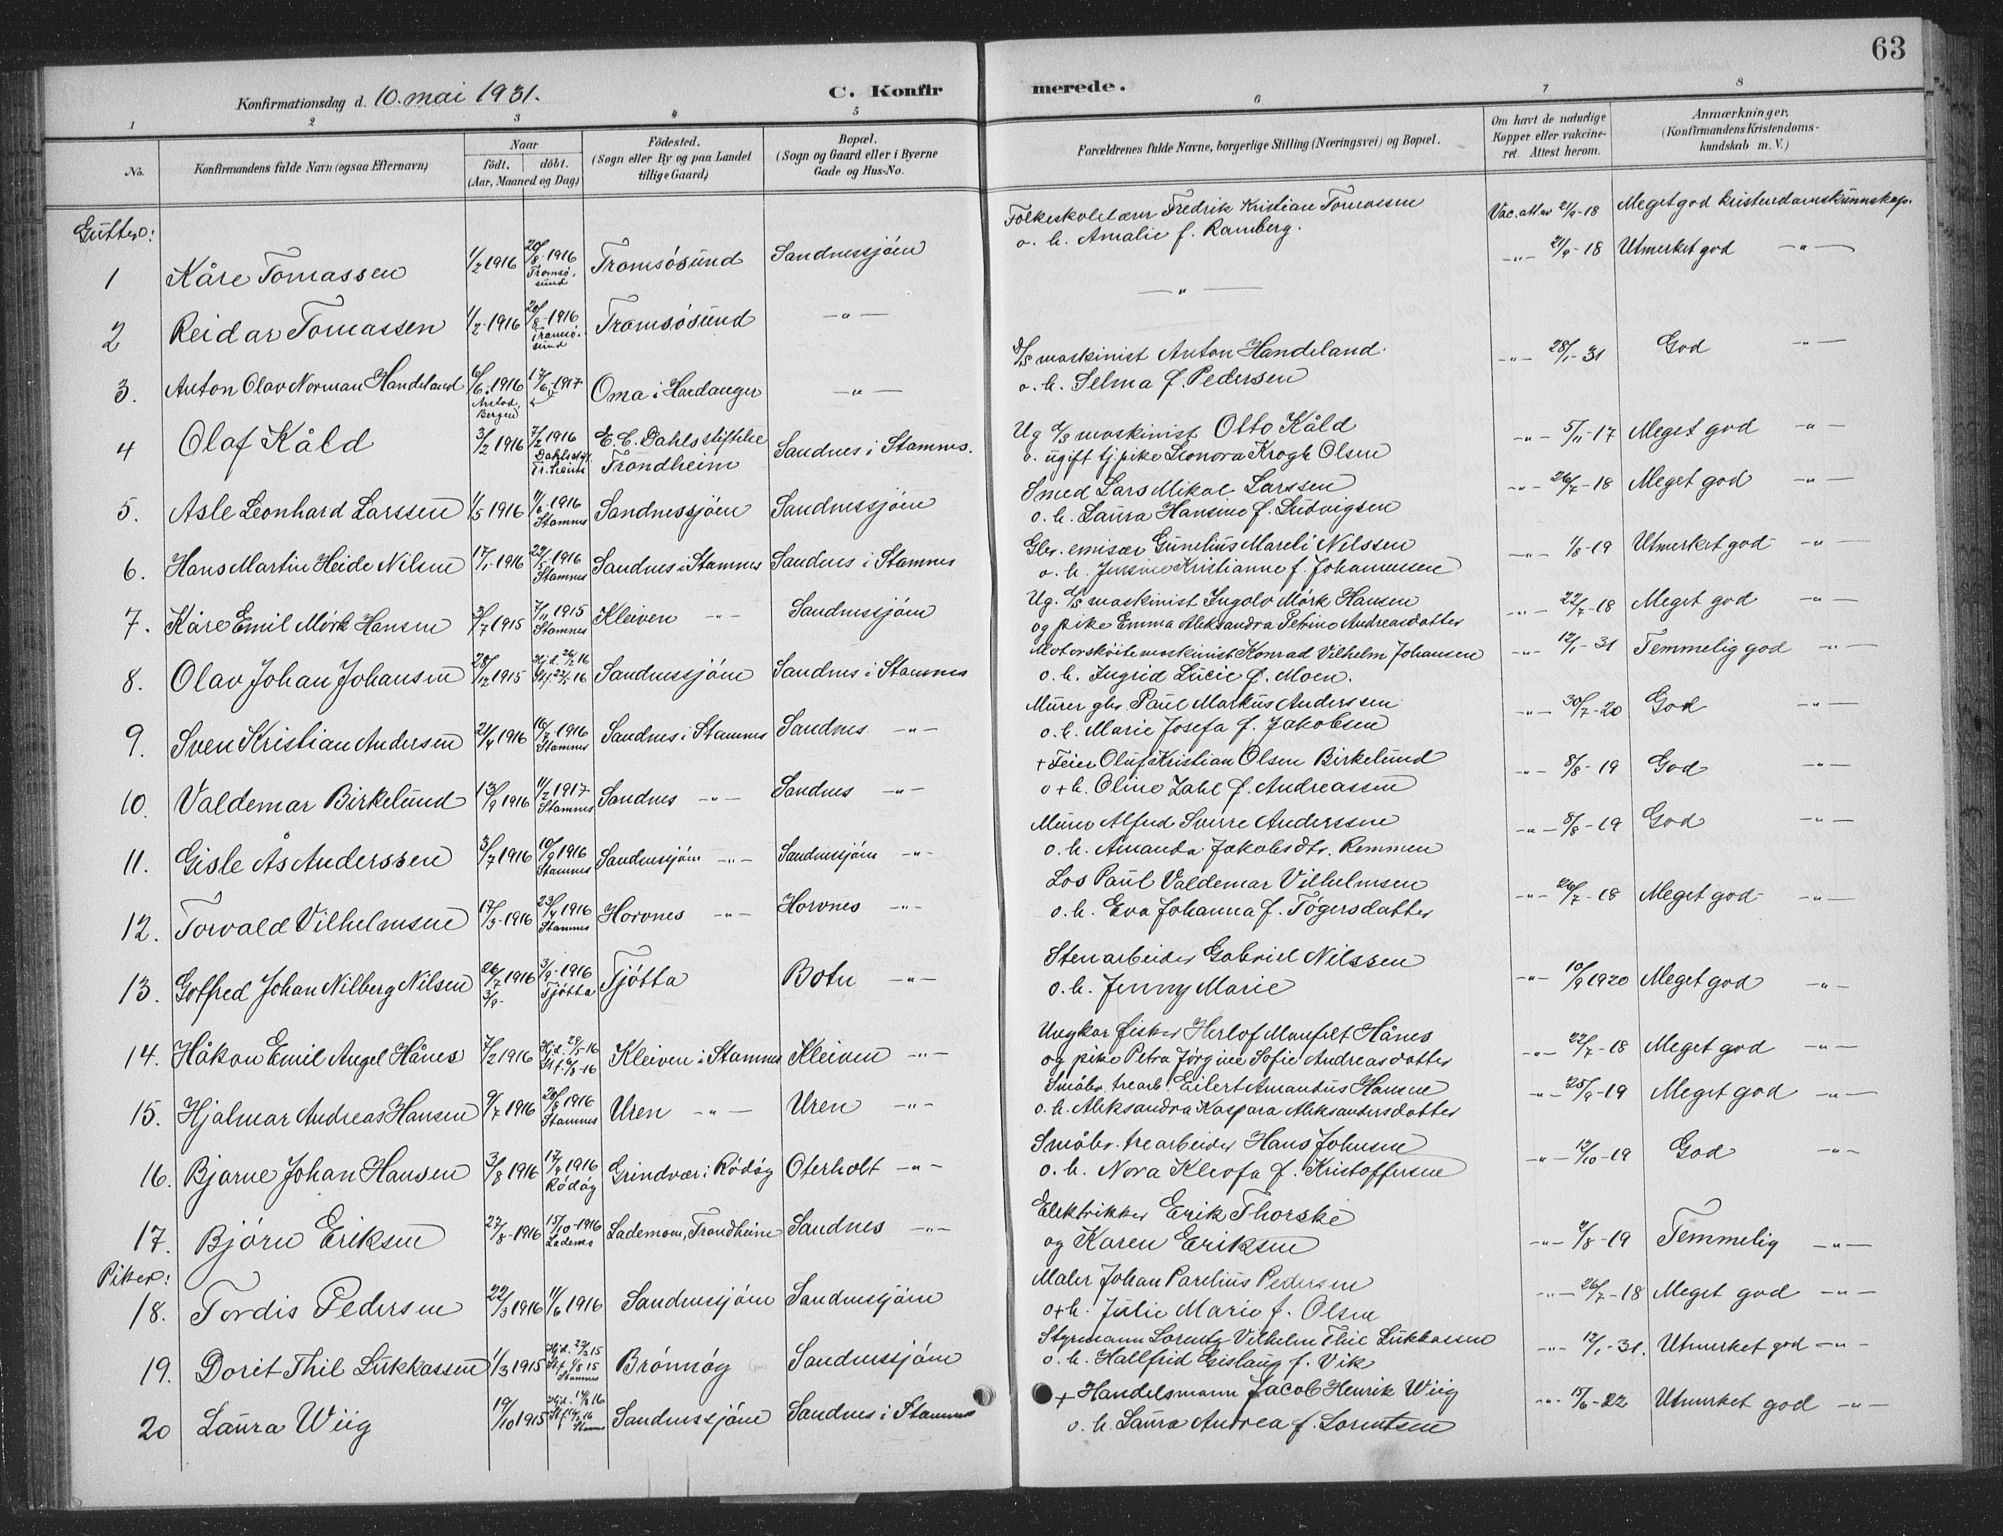 63
Konfirmationsdag d. 10. mai 1931.
C. Konfirmerede.
1 2 3 4 5 6 7 8
No. Konfirmandens fulde Navn (ogsaa Efternavn) Naar født. døbt. (Aar, Maaned og Dag) Fødested. (Sogn eller By og paa Landet tillige Gaard) Bopæl. (Sogn og Gaard eller i Byerne Gade og Hus-No. Forældrenes fulde Navne, borgerlige Stilling (Næringsvei) og Bopæl. Om havt de naturlige Kopper eller vakcineret. Attest herom. Anmærkninger. (Konfirmandens Kristendomskundskab m. V.)
Gutter:
1 Kåre Tomassen 1/2 1916 20/8-1916 Tromsøsund Tromsøsund Sandnessjøen Folkeskolelærer Fredrik Kristian Tomassen o. h. Amalie f. Ramberg. Vac. att av 21/9-18 Meget god kristendomskunnskap.
2 Reidar Tomassen 1/2-1916 20/8-1916 Tromsøsund Tromsøsund -"- -"- -"- 21/9-18 Utmerket god -"-
3. Anton Olav Norman Handeland 6/6-1916 17/6-1917 Årstad, Bergen Oma i Hardanger -"- d/s maskinist Anton Handeland o. h. Selma f. Pedersen -"- 28/1-31 God -"-
4 Olaf Kåld 3/2 1916 7/2 1916 E. C. Dahls stiftelse Trondheim Sandnes i Stamnes. Ug d/s maskinist Otto Kåld o. ugift tj pike Leonora Krogh Olsen -"- 5/11-17 Meget god -"-
5. Asle Leonhard Larssen 1/5 1916 11/6-1916 Stamnes Sandnessjøen Sandnessjøen Smed Lars Mikal Larssen o. h. Laura Hansine f. Ludvigsen -"- 26/7-18 Meget god -"-
6. Hans Martin Heide Nilsen 17/1-1916 Stamnes Sandnes i Stamnes Sandnes i Stamnes Gbr. emisær Gunelius Mareli Nelssen o. h. Jensine Kristianne f. Johannessen -"- 1/8-19 Utmerket god -"-
7. Kåre Emil Mørk Hansen 3/7 1915 7/11 1915 Stamnes Kleiven -"- Sandnessjøen Ug. d/s maskinist Ingolv Mørk Hansen og pike Emma Aleksandra Petrine Andreasdatter -"- 22/7-18 Meget god -"-
8. Olav Johan Johansen 28/12 1915 Hjd. 26/2 16 Sandnessjøen Sandnes i Stamnes Motorskøitemaskinist Konrad Vilhelm Johansen o. h. Ingrid Lucie f. Moen. -"- 12/1-31 Temmelig god -"-
9. Sven Kristian Andersen 21/4 1916 16/7-1916 Stamnes Sandnes i Stamnes Sandnes -"- Murer gbr. Paul Markus Anderssen o. h. Marie Josefa f. Jakobsen -"- 30/7-20 God -"-
10. Valdemar Birkelund 13/9 1916 11/2-1917 Stamnes Sandnes -"- Sandnes -"- + Feier Oluf Kristian Olsen Birkelund o + h. Oline Zahl f. Andreassen -"- 8/8-19 God -"-
11. Gisle Ås Anderssen 3/7 1916 10/9 1916 Stamnes Sandnessjøen -"- Sandnessjøen -"- Murer Alfred Sverre Anderssen o. h. Amanda Jakobsdtr. Remmen -"- 8/8-19 God -"-
12. Torvald Vilhelmsen 17/3-1916 23/4 1916 Stamnes Horvnes -"- Horvnes -"- Los Paul Valdemar Vilhelmsen o. h. Eva Johanna f. Tøgersdatter -"- 26/7-18 Meget god -"-
13. Gotfred Johan Nilberg Nilsen 26/7 1916 3/9- 3/9-1916 Tjøtta Tjøtta Botn -"- Stenarbeider Gabriel Nilssen o. h. Jenny Marie -"- 10/9 1920 Meget god -"-
14. Håkon Emil Angel Hånes 7/2 1916 Kleiven i Stamnes Kleiven -"- Ungkar fisker Herlof Manfelt Hånes og pike Petra Jørgine Sofie Andreasdatter -"- 22/7-18 Meget god -"-
15. Hjalmar Andreas Hansen 9/7 1916 20/8 1916 Stamnes Uren -"- Uren -"- Småbr. trearb. Eilert Amandus Hansen o. h. Aleksandra Kaspara Aleksandersdatter -"- 25/9-19 Meget god -"-
16. Bjarne Johan Hansen 3/8 1916 17/9 1916 Rødøy Grindvær i Rødøy Oterholt -"- Småbr. trearbeider Hans Johnsen o. h. Nora Kleofa f. Kristoffersen -"- 12/10-19 God -"-
17. Bjørn Eriksen 27/8-1916 15/10-1916 Lademoen, Trondheim Sandnes -"- Elektrikker Erik Thorske og Karen Eriksen -"- 9/8-19 Temmelig -"-
Piker:
18. Tordis Pedersen 22/3 1916 11/6 1916 Sandnessjøen Sandnessjøen Maler Johan Parelius Pedersen o + h. Julie Marie f. Olsen -"- 26/7-18 Meget god -"-
19. Dorit Thil Lukkassen 1/3 1915 Stamnes Brønnøy Sandnessjøen Styrmann Lorentz Vilhelm Thil Lukkassen o. h. Hallfrid Gislaug f. Vik -"- 12/1-31. Utmerket god -"-
20 Laura Wiig 19/10 1915 Stamnes Sandnessjøen Sandnes i Stamnes + Handelsmann Jacob Henrik Wiig o. h. Laura Andrea f. Lorentsen -"- 15/6-22 Utmerket god -"-